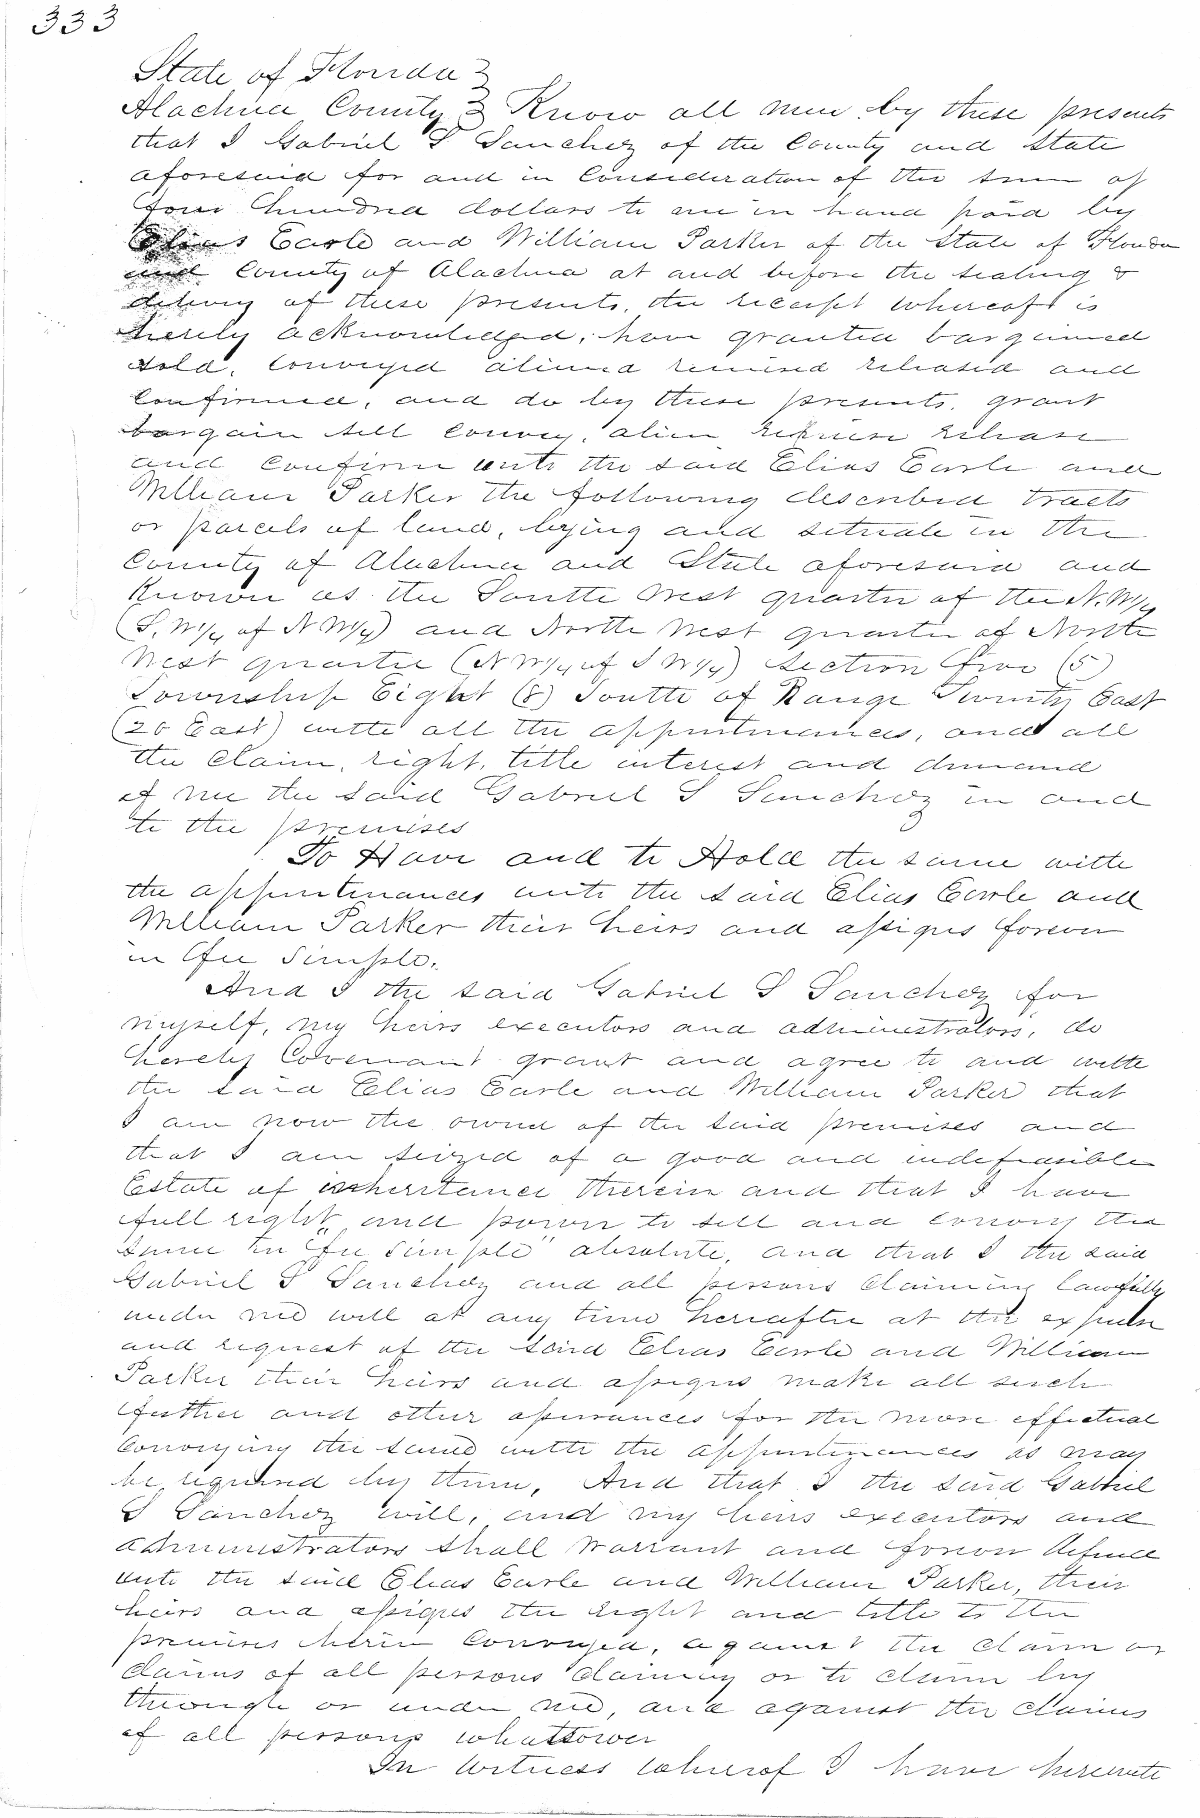 333
State of Florida }
Alachua County } Know all men by these presents
that I Gabriel S Sanchez of the County and State
aforesaid for and in Consideration of the sum of
four hundred dollars to me in hand paid by
Elias Earle and William Parker of the State of Florida
and County of Alachua at and before the sealing &
delivery of these presents, the receipt whereof is
hereby acknowledged, have granted bargained
sold, conveyed aliened remised released and
Confirmed, and do by these presents, grant
bargain sell convey, alien remise release
and confirm unto the said Elias Earle and
William Parker the following described tracts
or parcels of land, lying and situate in the
County of Alachua and State aforesaid and
Known as the South West quarter of the N.W1/4
(S.W1/4 of N W1/4) and North West quarter of North
West quarter (N W1/4 of S W1/4) Section five (5)
Township Eight (8) South of Range Twenty East
(20 East) with all the appurtenances, and all
the claim, right, title interest and demand
of me the said Gabriel S Sanchez in and
to the premises
To Have and to Hold the same with
the appurtenances unto the said Elias Earle and
William Parker their heirs and assigns forever
in fee simple.
And I the said Gabriel S Sanchez for
myself, my heirs executors and administrators, do
hereby Covenant grant and agree to and with
the said Elias Earle and William Parker that
I am now the owner of the said premises and
that I am seized of a good and indefeasible
Estate of inheritance therein and that I have
full right and power to sell and convey the
same in "fee simple" absolute, and that I the said
Gabriel S Sanchez and all persons Claiming lawfully
under me will at any time hereafter at the expense
and request of the said Elias Earle and William
Parker their heirs and assigns make all such
further and other assurances for the more effectual
Conveying the same with the appurtenances as may
be required by them, And that I the said Gabriel
S Sanchez will, and my heirs executors and
administrators shall Warrant and forever defend
unto the said Elias Earle and William Parker, their
heirs and assigns the right and title to the
premises herein Conveyed, against the claim or
claims of all persons claiming or to claim by
through or under me, and against the claims
of all persons whatsoever
In Witness whereof I have hereunto